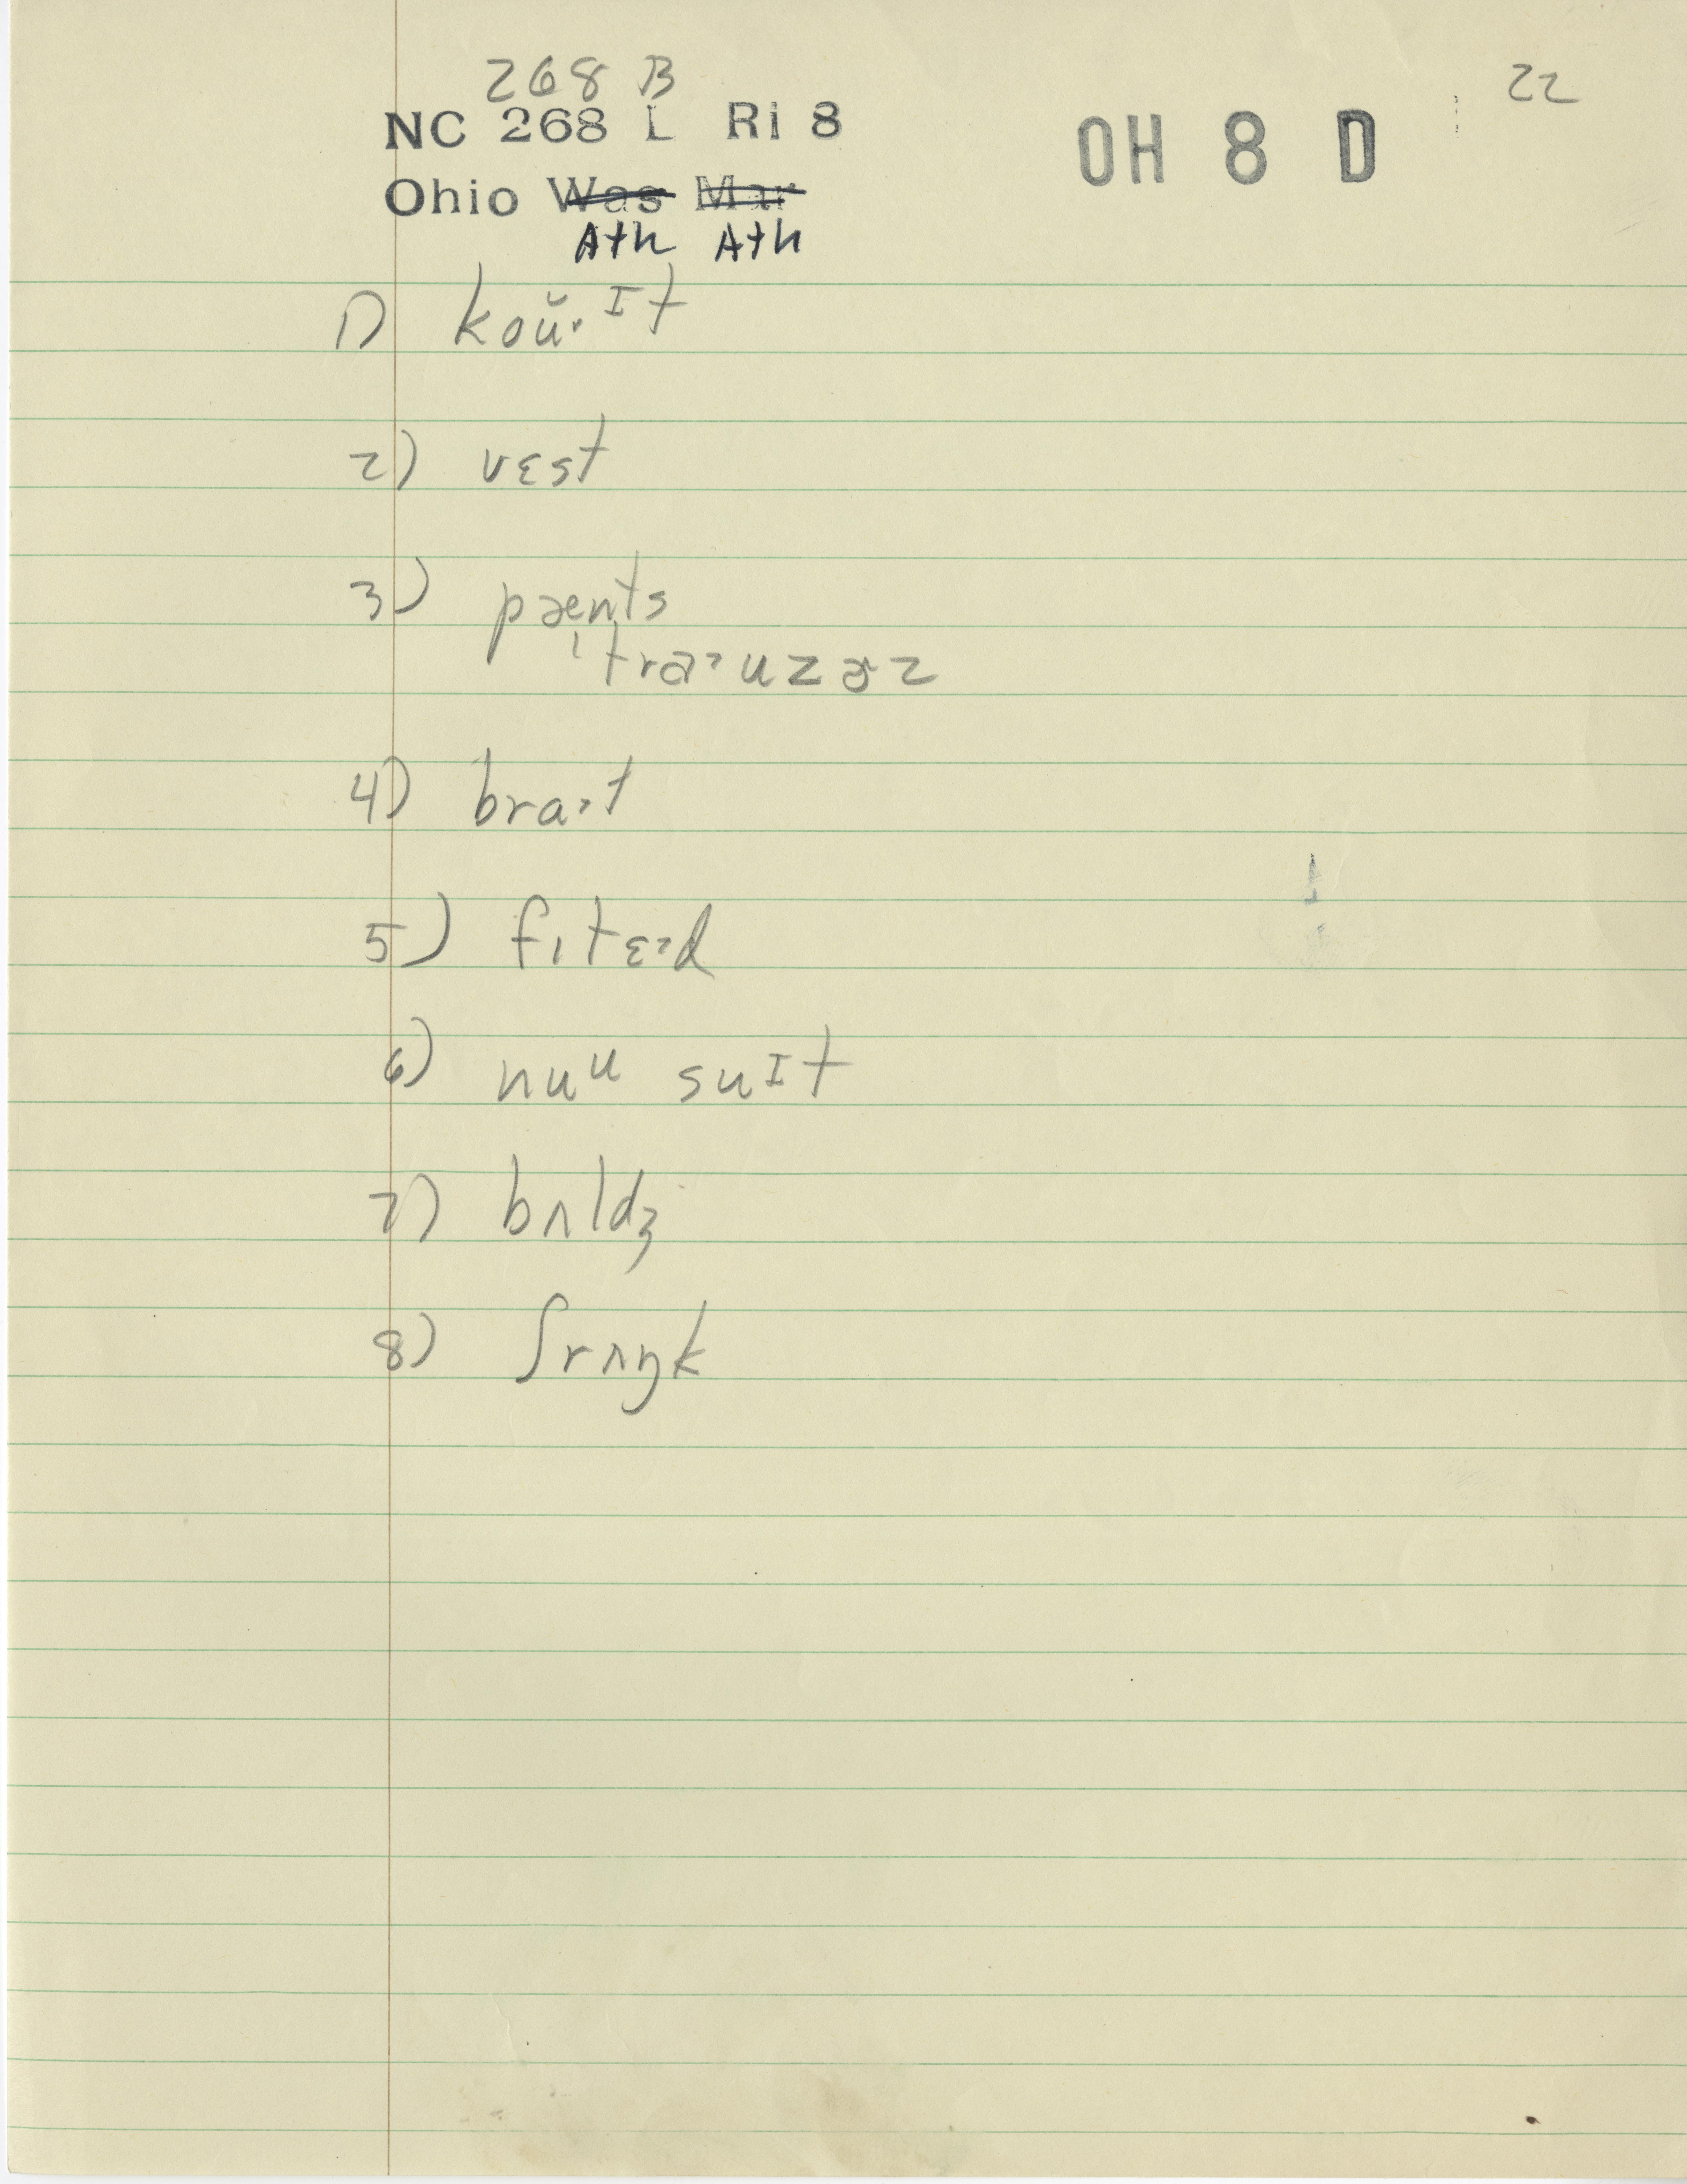 268 B
22
NC 268 L Ri 8
OH 8 D
Ohio Was Mar
Ath Ath
1) koŭ· ᴵt
2) vɛst
3) pænts
ˈtraˑuzɚz
4) braˑt
5) fitɛˑd
6) nuᵘ suɪt
7) bʌldʒ
8) ʃrʌŋk